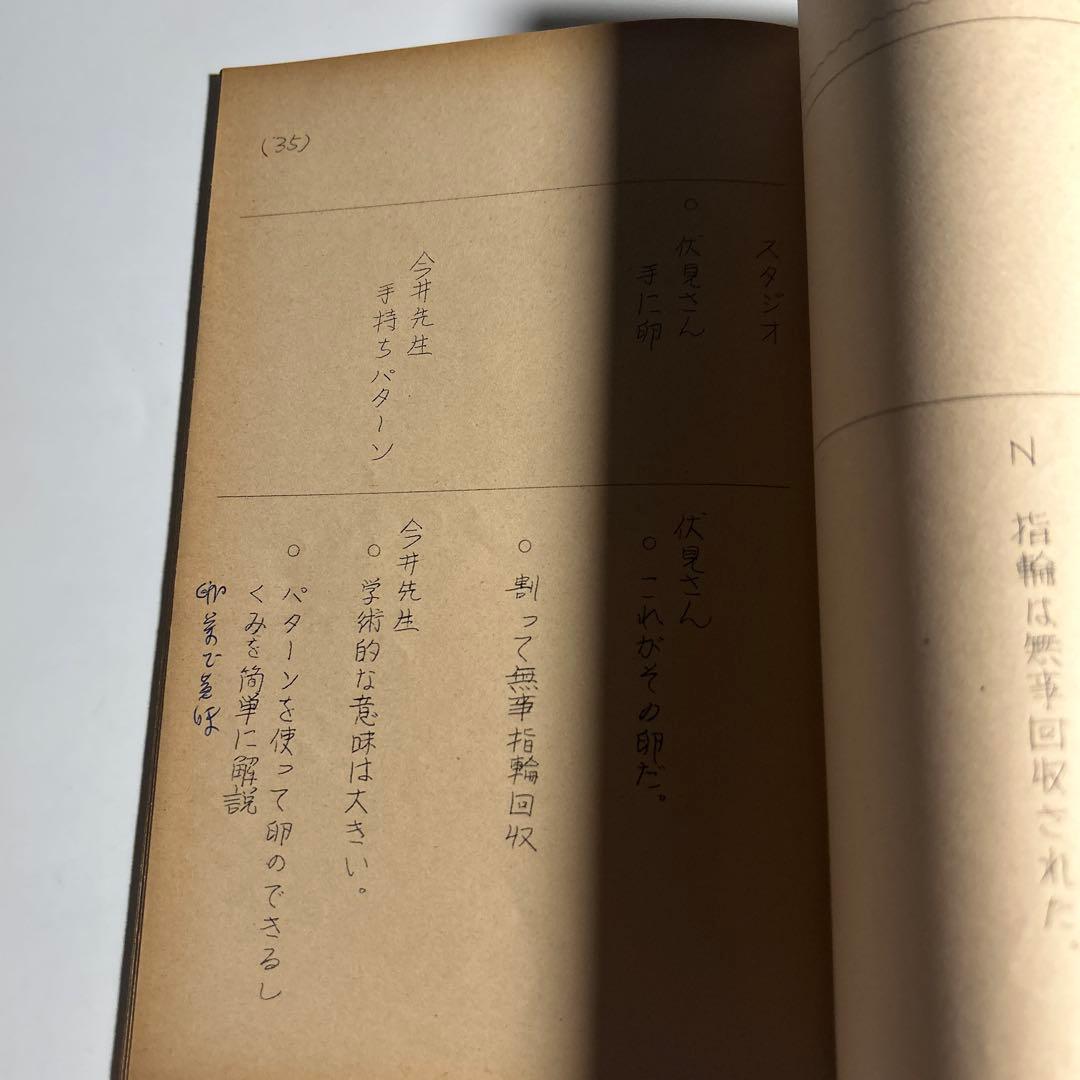 N 指輪は無事回収された。
(35)
スタジオ
○ 伏見さん
手に卵
今井先生
手持ちパターン
伏見さん
○ これがその卵だ。
○ 割って無事指輪回収
今井先生
○ 学術的な意味は大きい。
○ パターンを使って卵のできるし
くみを簡単に解説